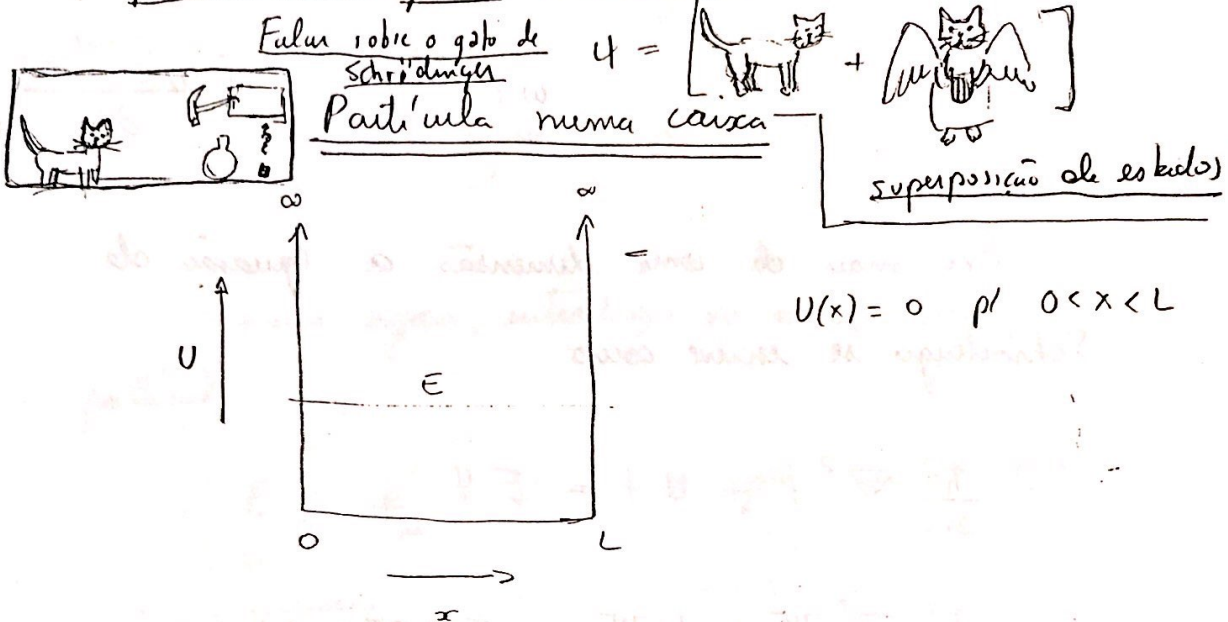 Falar sobre o gato de
Schrödinger
ψ = [ + ]
Partícula numa caixa
superposição de estados
∞ ∞
=
U(x) = 0 p/ 0 < x < L
U
E
O L
x